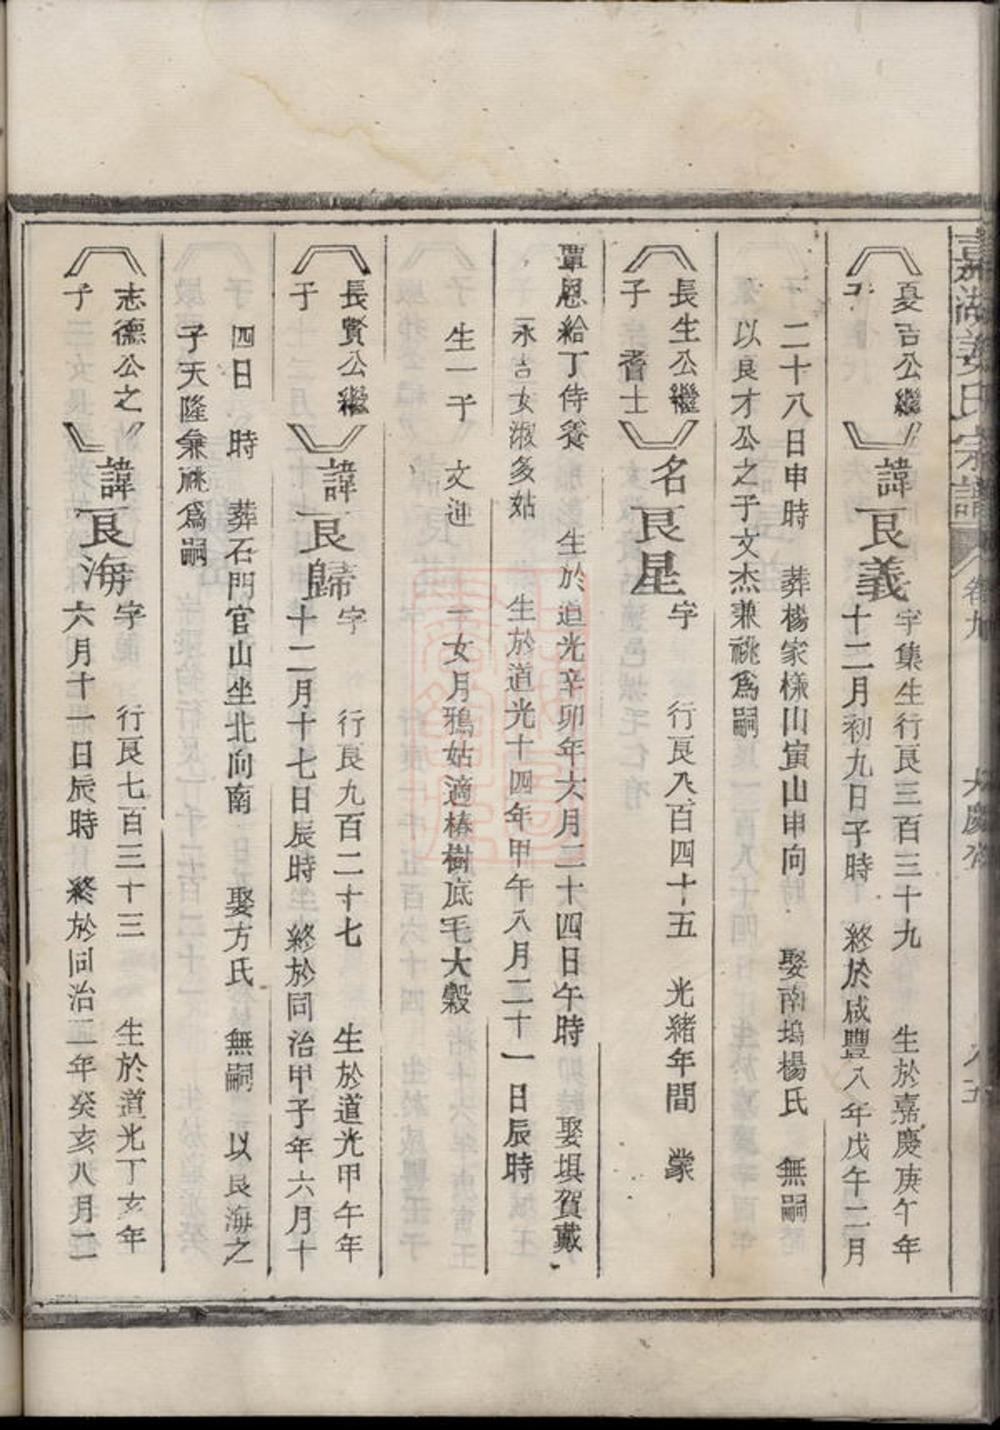 姜氏宗譜 卷九
夏吉公繼子
諱良義
字集生行良三百三十九 生於嘉慶庚午年
十二月初九日子時 終於咸豐八年戊午二月
二十八日申時 葬楊家樣山寅山申向 娶南塢楊氏 無嗣
以良才公之子文杰兼祧爲嗣
長生公繼子 耆士
名良星
字 行良八百四十五 光緒年間 蒙
覃恩給丁侍養 生於道光辛卯年六月二十四日午時 娶垻賀戴
氏 生於道光十四年甲午八月二十一日辰時
生一子 文迎 二女月鴉姑適椿樹底毛大穀
長賢公繼子
諱良歸
字 行良九百二十七 生於道光甲午年
十二月十七日辰時 終於同治甲子年六月十
四日 時 葬石門官山坐北向南 娶方氏 無嗣 以良海之
子天隆兼祧爲嗣
志德公之子
諱良海
字 行良七百三十三 生於道光丁亥年
六月十一日辰時 終於同治二年癸亥八月二